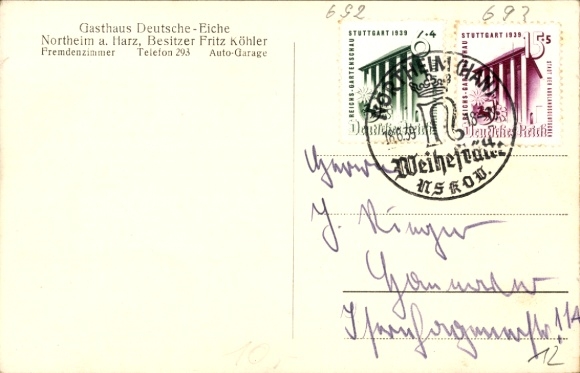 692
693
Gasthaus Deutsche-Eiche
Northeim a. Harz, Besitzer Fritz Köhler
Fremdenzimmer Telefon 293 Auto-Garage
REICHS-GARTENSCHAU STUTTGART 1939
6+4
Deutsches Reich
REICHS-GARTENSCHAU STUTTGART 1939
15+5
STADT DER AUSLANDSDEUTSCHEN
Deutsches Reich
NORTHEIM (HAN)
18.6.39
n
Weihestätte
NSKOV.
Herrn
J.
Hannover
12